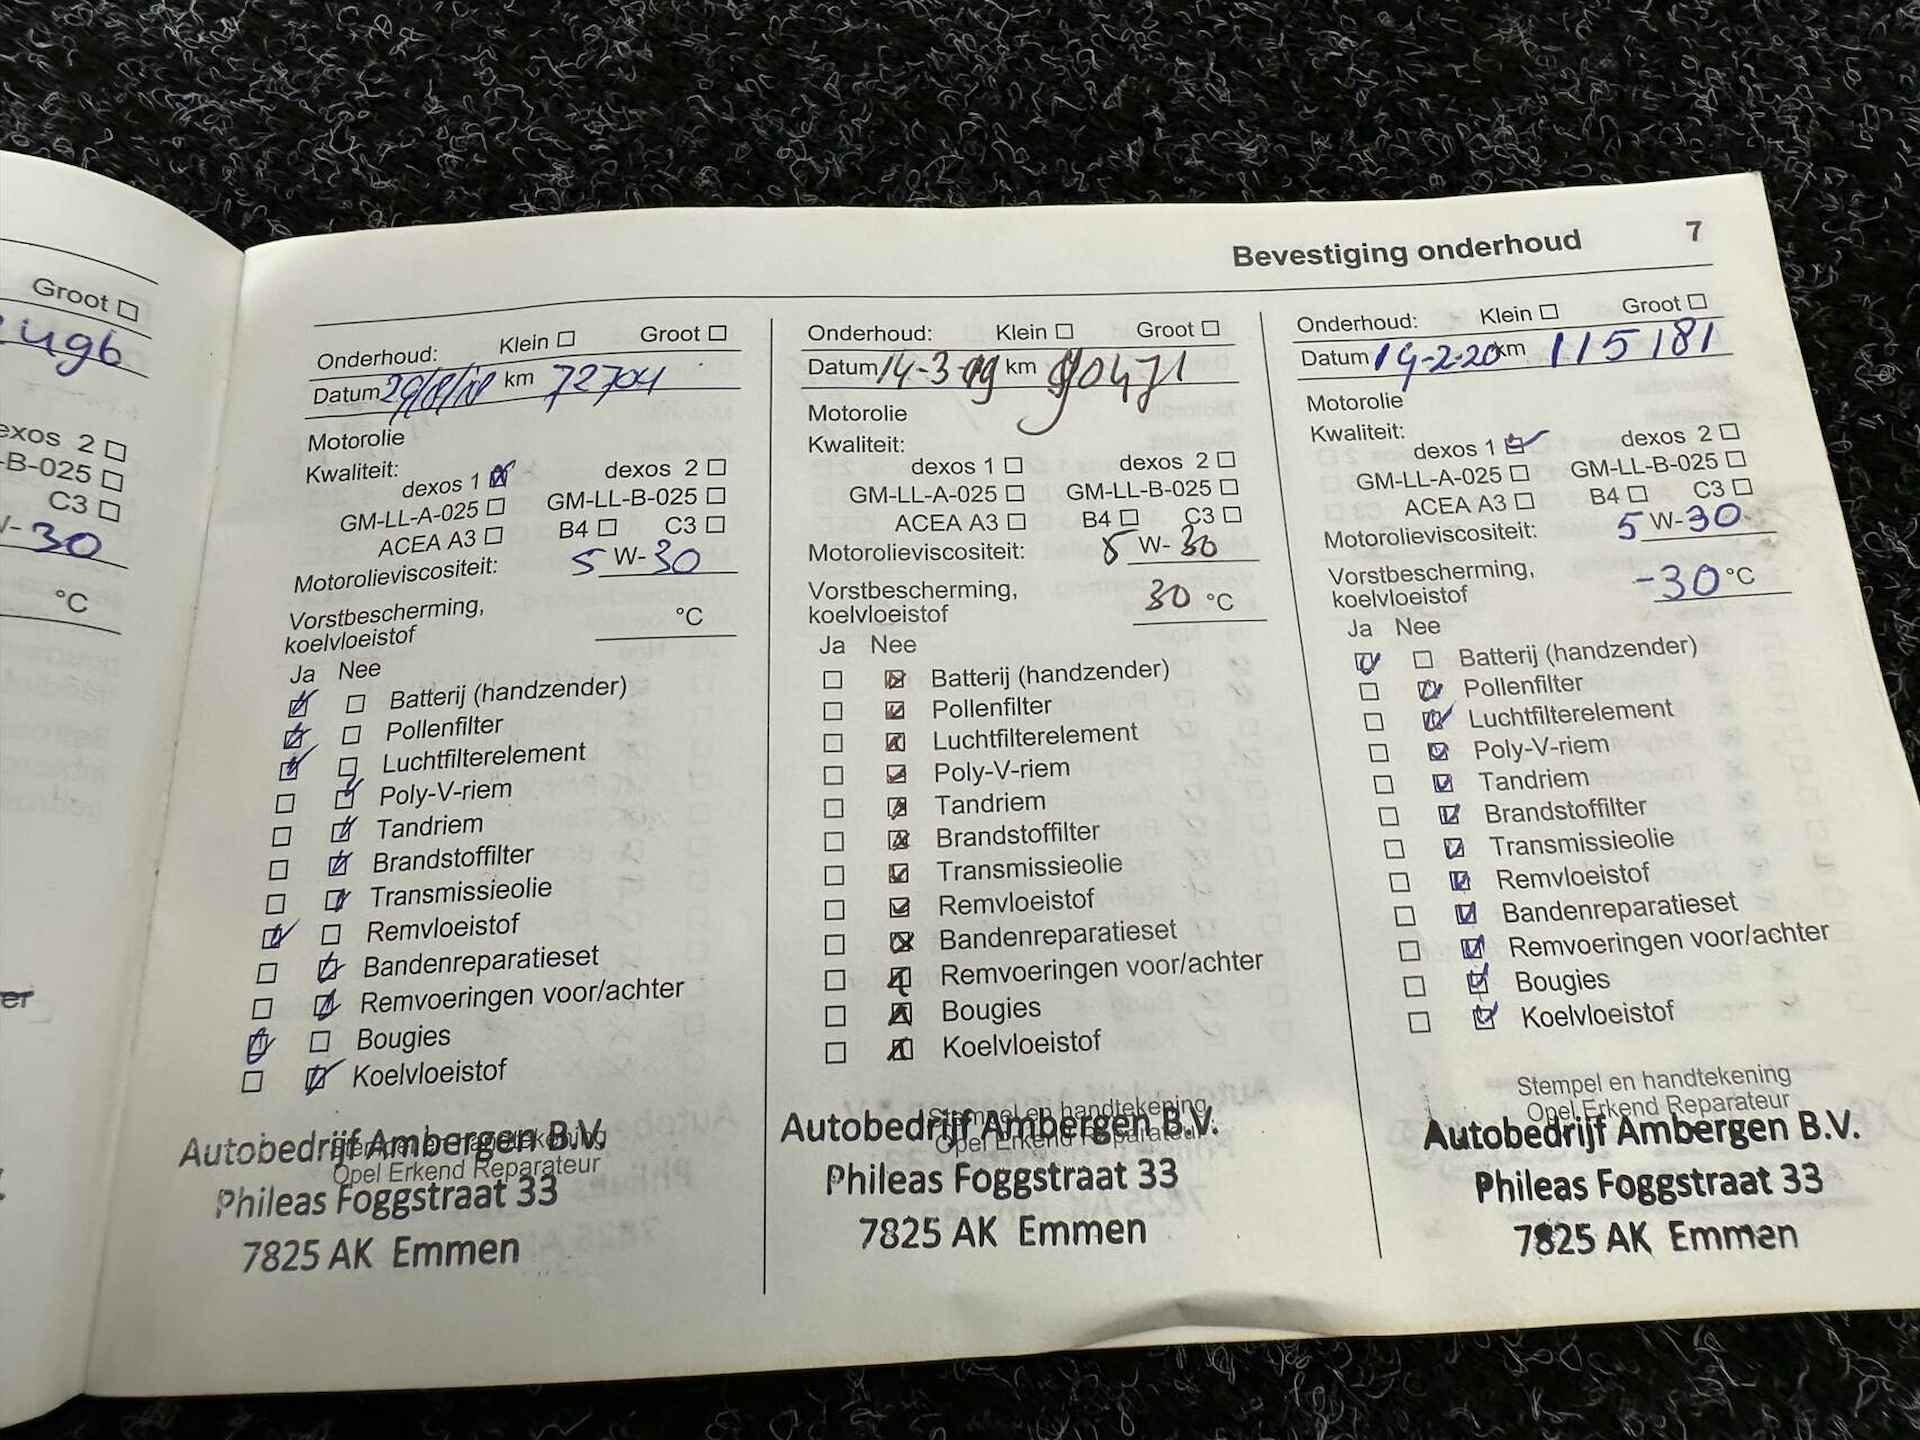 Groot
Bevestiging onderhoud 7
dexos 2
-B-025
C3
W-30
°C
Onderhoud: Klein Groot
Datum 29/8/18 km 72704
Motorolie
Kwaliteit:
dexos 1 dexos 2
GM-LL-A-025 GM-LL-B-025
ACEA A3 B4 C3
Motorolieviscositeit: 5 W-30
Vorstbescherming,
koelvloeistof °C
Ja Nee
Batterij (handzender)
Pollenfilter
Luchtfilterelement
Poly-V-riem
Tandriem
Brandstoffilter
Transmissieolie
Remvloeistof
Bandenreparatieset
Remvoeringen voor/achter
Bougies
Koelvloeistof
Stempel en handtekening
Opel Erkend Reparateur
Autobedrijf Ambergen B.V.
Phileas Foggstraat 33
7825 AK Emmen
Onderhoud: Klein Groot
Datum 14-3-19 km 90471
Motorolie
Kwaliteit:
dexos 1 dexos 2
GM-LL-A-025 GM-LL-B-025
ACEA A3 B4 C3
Motorolieviscositeit: 5 W-30
Vorstbescherming,
koelvloeistof 30 °C
Ja Nee
Batterij (handzender)
Pollenfilter
Luchtfilterelement
Poly-V-riem
Tandriem
Brandstoffilter
Transmissieolie
Remvloeistof
Bandenreparatieset
Remvoeringen voor/achter
Bougies
Koelvloeistof
Stempel en handtekening
Opel Erkend Reparateur
Autobedrijf Ambergen B.V.
Phileas Foggstraat 33
7825 AK Emmen
Onderhoud: Klein Groot
Datum 14-2-20 km 115181
Motorolie
Kwaliteit:
dexos 1 dexos 2
GM-LL-A-025 GM-LL-B-025
ACEA A3 B4 C3
Motorolieviscositeit: 5 W-30
Vorstbescherming,
koelvloeistof -30 °C
Ja Nee
Batterij (handzender)
Pollenfilter
Luchtfilterelement
Poly-V-riem
Tandriem
Brandstoffilter
Transmissieolie
Remvloeistof
Bandenreparatieset
Remvoeringen voor/achter
Bougies
Koelvloeistof
Stempel en handtekening
Opel Erkend Reparateur
Autobedrijf Ambergen B.V.
Phileas Foggstraat 33
7825 AK Emmen